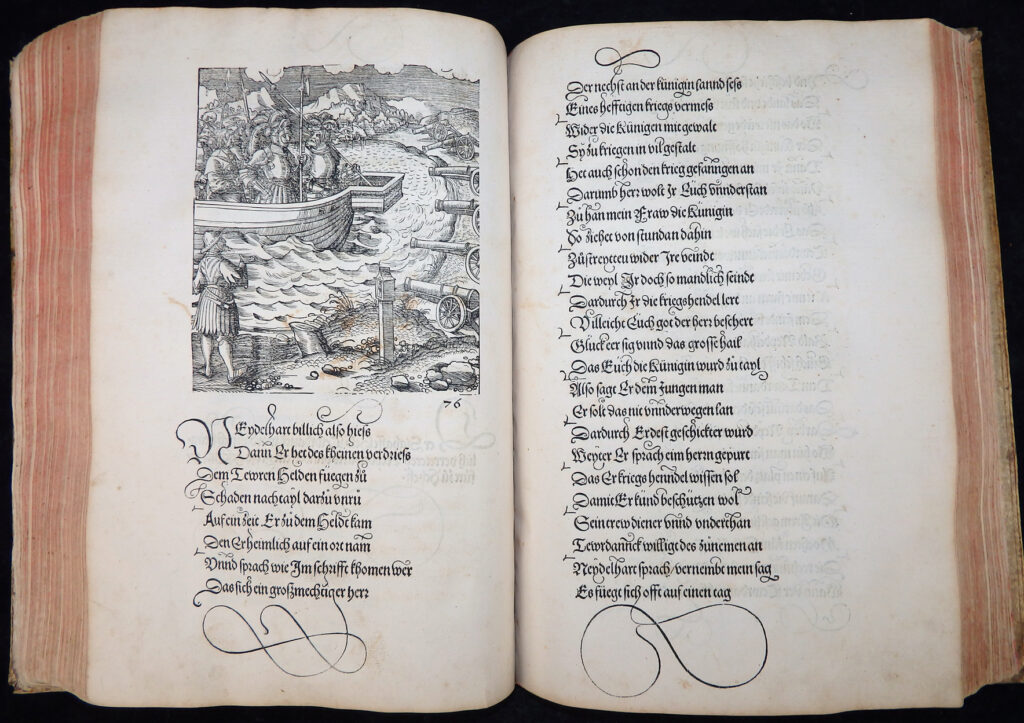 76
Neydelhart billich also hiess
Dann Er het des kheinen verdriess
Dem Tewren Helden fuegen zů
Schaden nachtayl darzů vnrů
Auf ein zeit Er zů dem Helde kam
Den Er heimlich auf ein ort nam
Vnnd sprach wie Im schrifft khomen wer
Das sich ein großmechtiger herr
Der nechst an der künigin lannd sess
Eines hefftigen kriegs vermess
Wider die Künigen mit gewalt
Sy zů kriegen in vil gestalt
Het auch schon den krieg gefanngen an
Darumb herr wolt Ir Euch vnnderstan
Zů han mein Fraw die Künigin
So ziehet von stundan dahin
Zů streytten wider Ire veindt
Die weyl Ir doch so mandlich seindt
Dardurch Ir die kriegshendel lert
Villeicht Euch got der herr beschert
Glück eer sig vnnd das grosse hail
Das Euch die Künigin wurd zů tayl
Also sagt Er dem Jungen man
Er solt das nit vnnderwegen lan
Dardurch Er dest geschickter wurd
Weyter Er sprach eim herrn gepurt
Das Er kriegs henndel wissen sol
Damit Er künd beschützen wol
Sein trew diener vnnd vnderthan
Tewrdannck willigt des zůnemen an
Neydelhart sprach vernembt mein sag
Es füegt sich offt auf einen tag